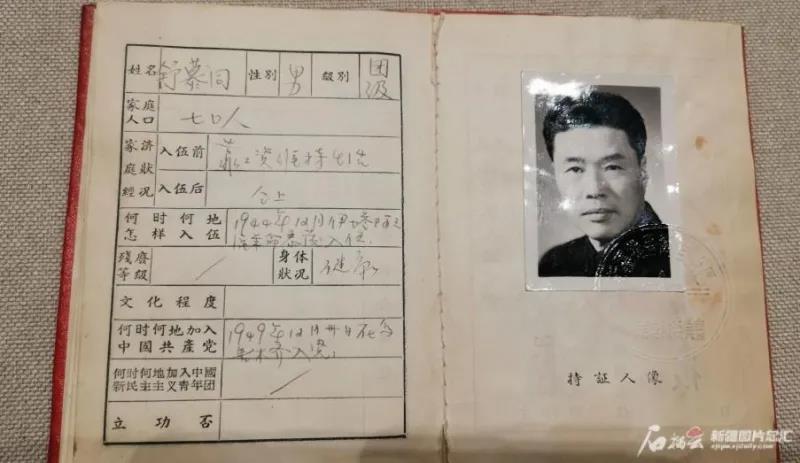 姓名 舒慕同 性别 男 級別 团级
家庭人口 七口人
家庭經濟狀况 入伍前 靠工资维持生活
入伍后 仝上
何时何地怎样入伍 1944年12月伊犁
革命 入伍
殘廢等級 / 身体狀况 健康
文化程度
何时何地加入中國共產党 1949年12月卅日在乌
鲁木齐入党
何时何地加入中國新民主主义青年团 /
立功否
持証人像
石榴云
新疆图片总汇